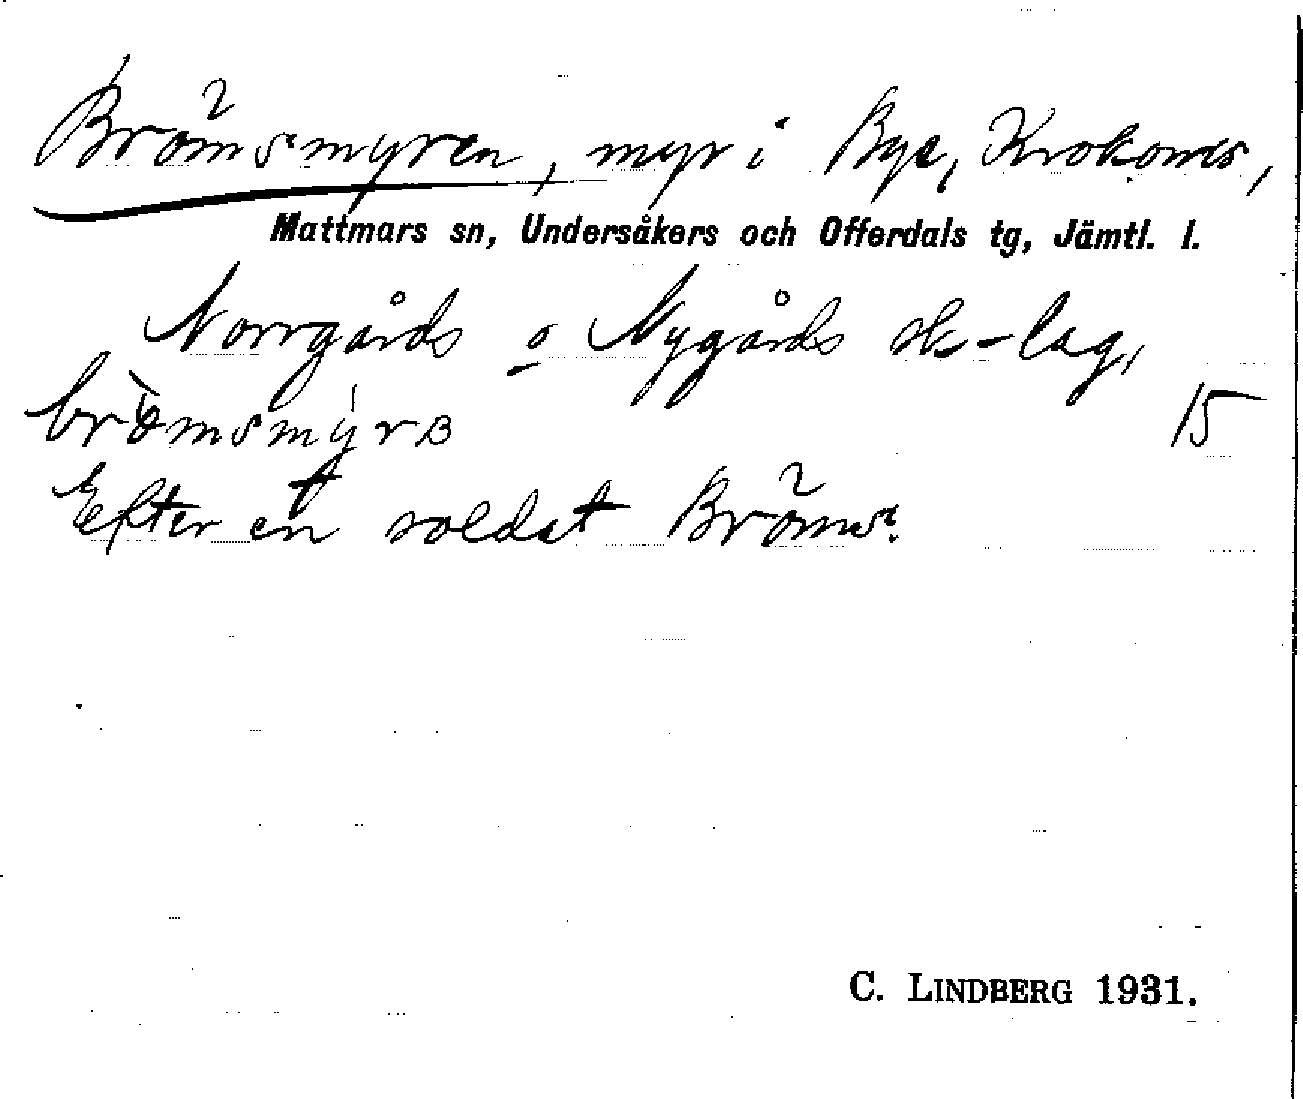 Brömsmyren, myr i Bye, Krokoms,
Mattmars sn, Undersåkers och Offerdals tg, Jämtl. l.
Norrgårds o Nygårds sk-lag,
brömsmỳrɜ 15
Efter en soldat Bröms.
C. LINDBERG 1931.